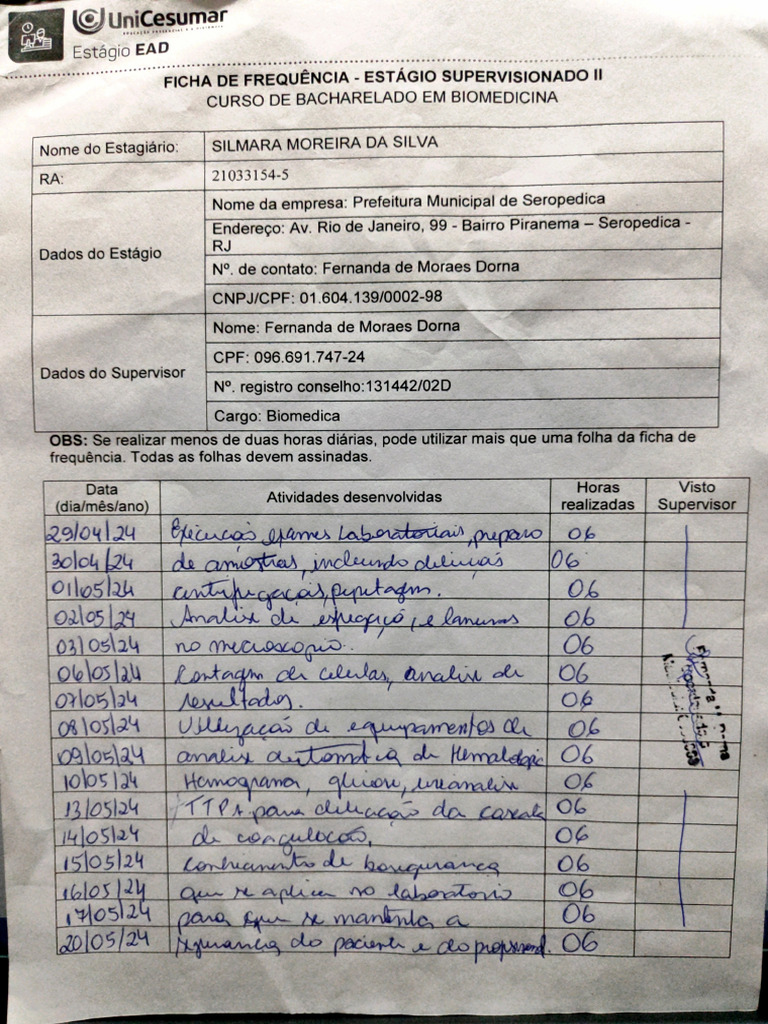 UniCesumar
Estágio EAD
FICHA DE FREQUÊNCIA - ESTÁGIO SUPERVISIONADO II
CURSO DE BACHARELADO EM BIOMEDICINA
Nome do Estagiário: SILMARA MOREIRA DA SILVA
RA: 21033154-5
Dados do Estágio
Nome da empresa: Prefeitura Municipal de Seropedica
Endereço: Av. Rio de Janeiro, 99 - Bairro Piranema – Seropedica -
RJ
Nº. de contato: Fernanda de Moraes Dorna
CNPJ/CPF: 01.604.139/0002-98
Dados do Supervisor
Nome: Fernanda de Moraes Dorna
CPF: 096.691.747-24
Nº. registro conselho:131442/02D
Cargo: Biomedica
OBS: Se realizar menos de duas horas diárias, pode utilizar mais que uma folha da ficha de
frequência. Todas as folhas devem assinadas.
Data (dia/mês/ano) Atividades desenvolvidas Horas realizadas Visto Supervisor
29/04/24 Execução exames laboratoriais, preparo 06
30/04/24 de amostras, incluindo 06
01/05/24 06
02/05/24 Analise de e laminas 06
03/05/24 no microscopio. 06
06/05/24 Contagem de celulas, analise de 06
07/05/24 resultados. 06
08/05/24 Utilização de equipamentos de 06
09/05/24 analise automatica de Hematologia 06
10/05/24 Hemograma, 06
13/05/24 TTPA para da 06
14/05/24 de coagulação, 06
15/05/24 de 06
16/05/24 que se aplica no laboratorio 06
17/05/24 para que se mantenha a 06
20/05/24 do paciente e do 06